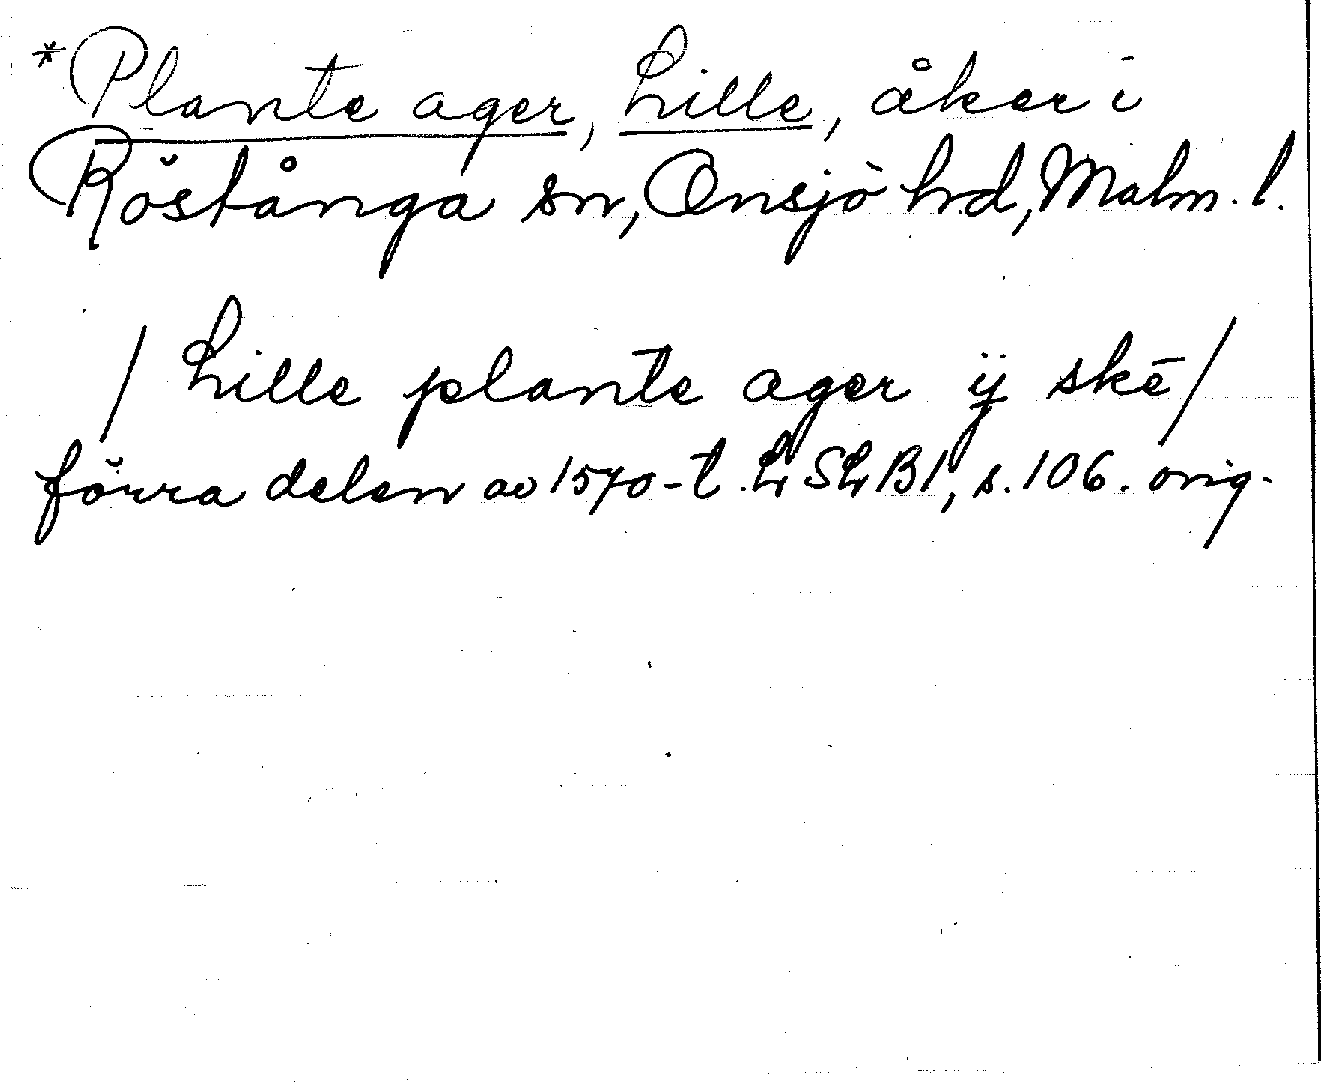 *Plante ager, Lille, åker i
Röstånga sn, Onsjö hd, Malm. l.
/ Lille plante ager ÿ skē /
förra delen av 1570-t. L SLB1, s. 106. orig.